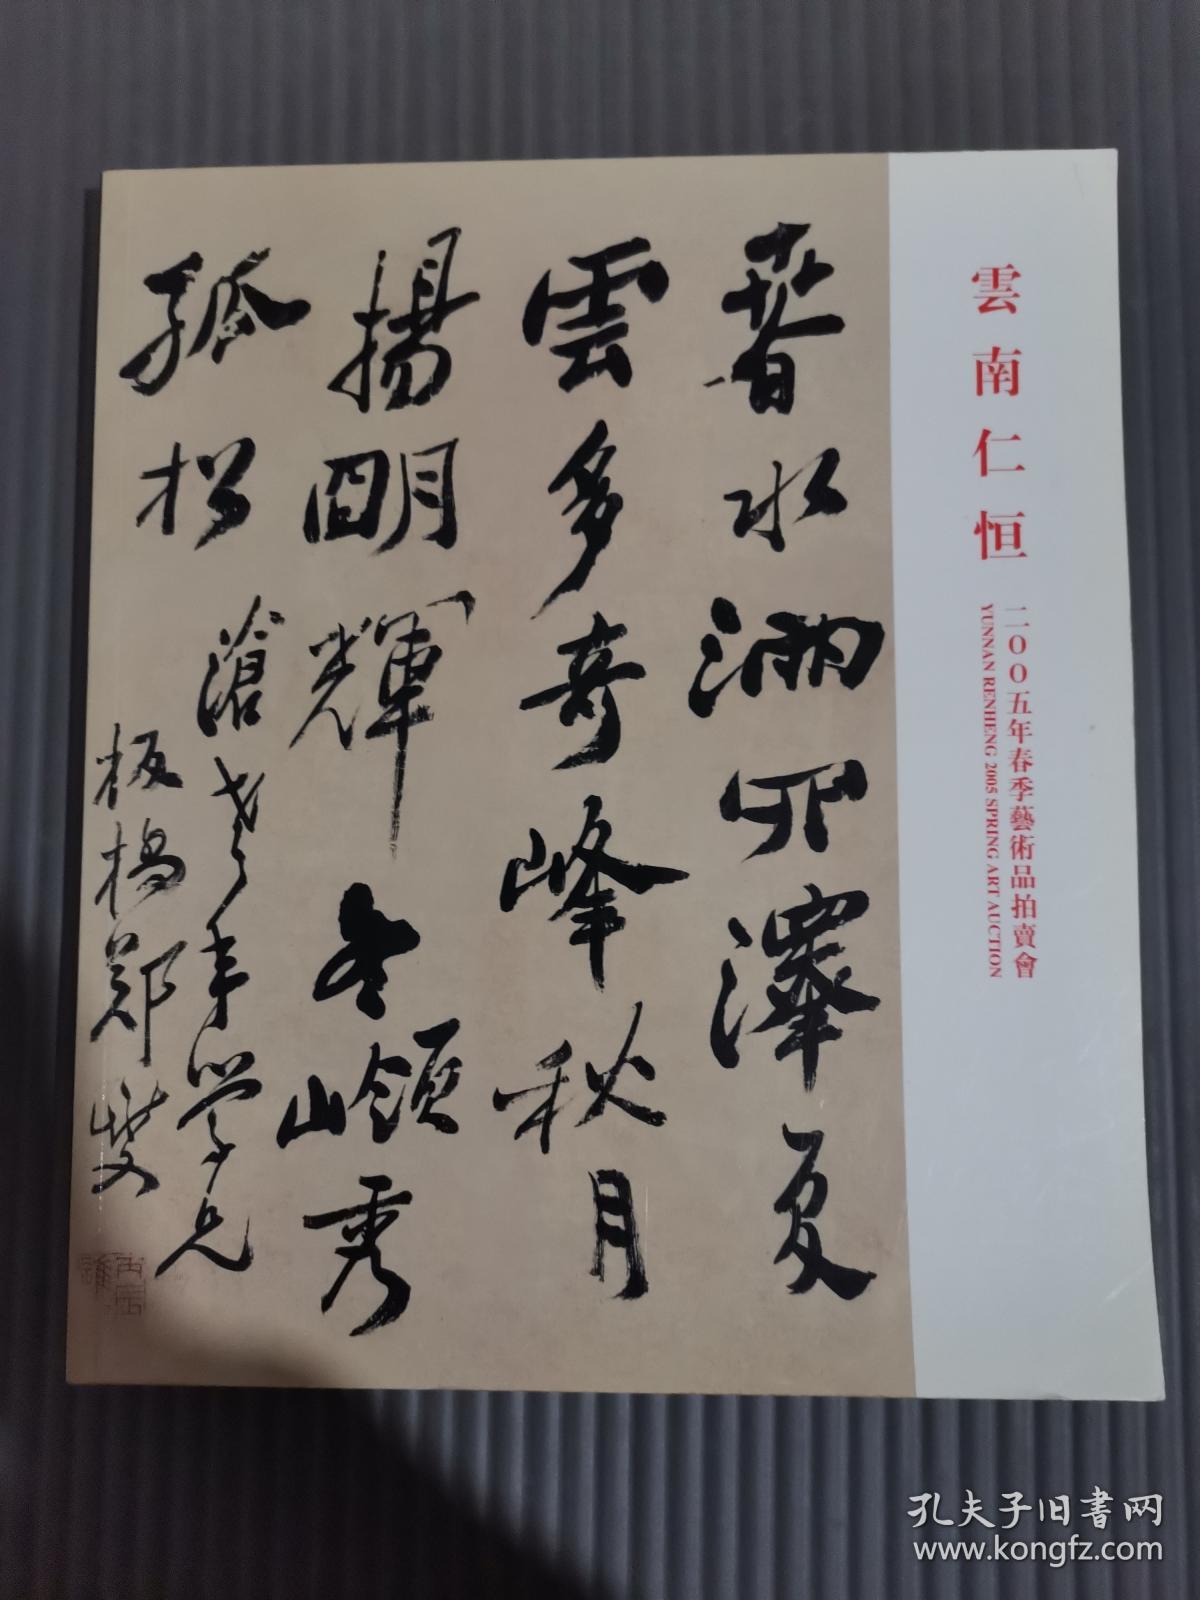 雲南仁恒
二〇〇五年春季藝術品拍賣會
YUNNAN RENHENG 2005 SPRING ART AUCTION
春水滿四澤夏
雲多奇峰秋月
揚朙輝冬嶺秀
孤松
滄老年學兄
板橋鄭燮
孔夫子旧书网
www.kongfz.com